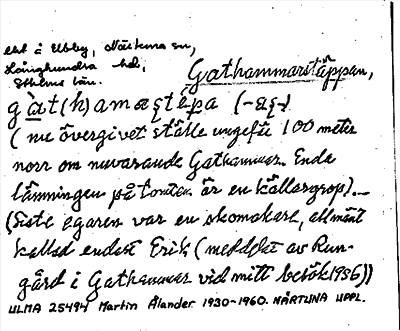 ebl i Ubby, Närtuna sn,
Långhundra hd,
Sthlms län.
Gathammarstäppan,
gàt(h)amaʂtɛ̀pa (-aʂ-)
(nu övergivet ställe ungefär 100 meter
norr om nuvarande Gathammar. Enda
lämningen på tomten är en källargrop)._
(Siste egaren var en skomakare, allmänt
kallad endast Erik (meddelat av Run-
gård i Gathammar vid mitt besök 1956))
ULMA 25494 Martin Ålander 1930-1960. NÄRTUNA UPPL.